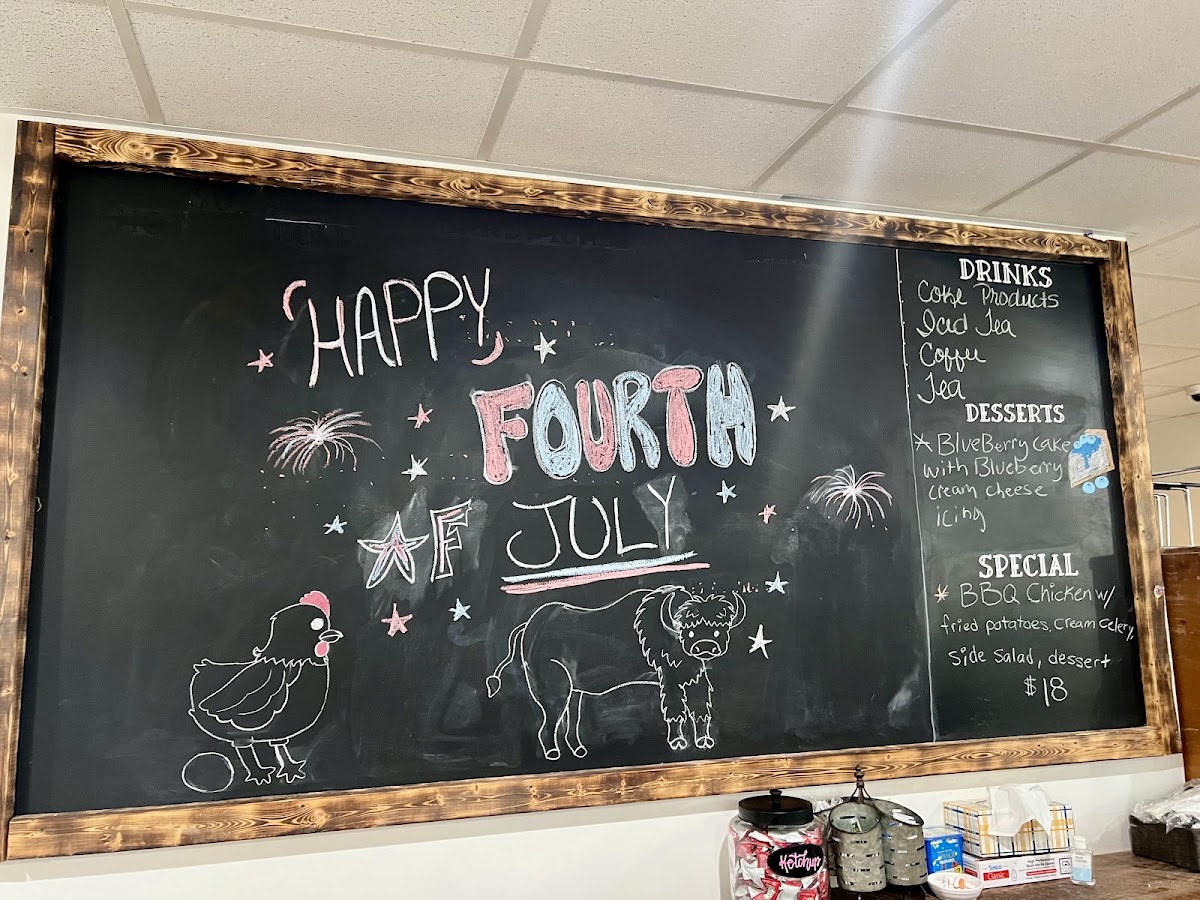 HAPPY
FOURTH
OF JULY
DRINKS
Coke Products
Iced Tea
Coffee
Tea
DESSERTS
* BlueBerry cake
with Blueberry
cream cheese
icing
SPECIAL
* BBQ Chicken w/
fried potatoes, cream celery,
side salad, dessert
$18
Ketchup
Classic